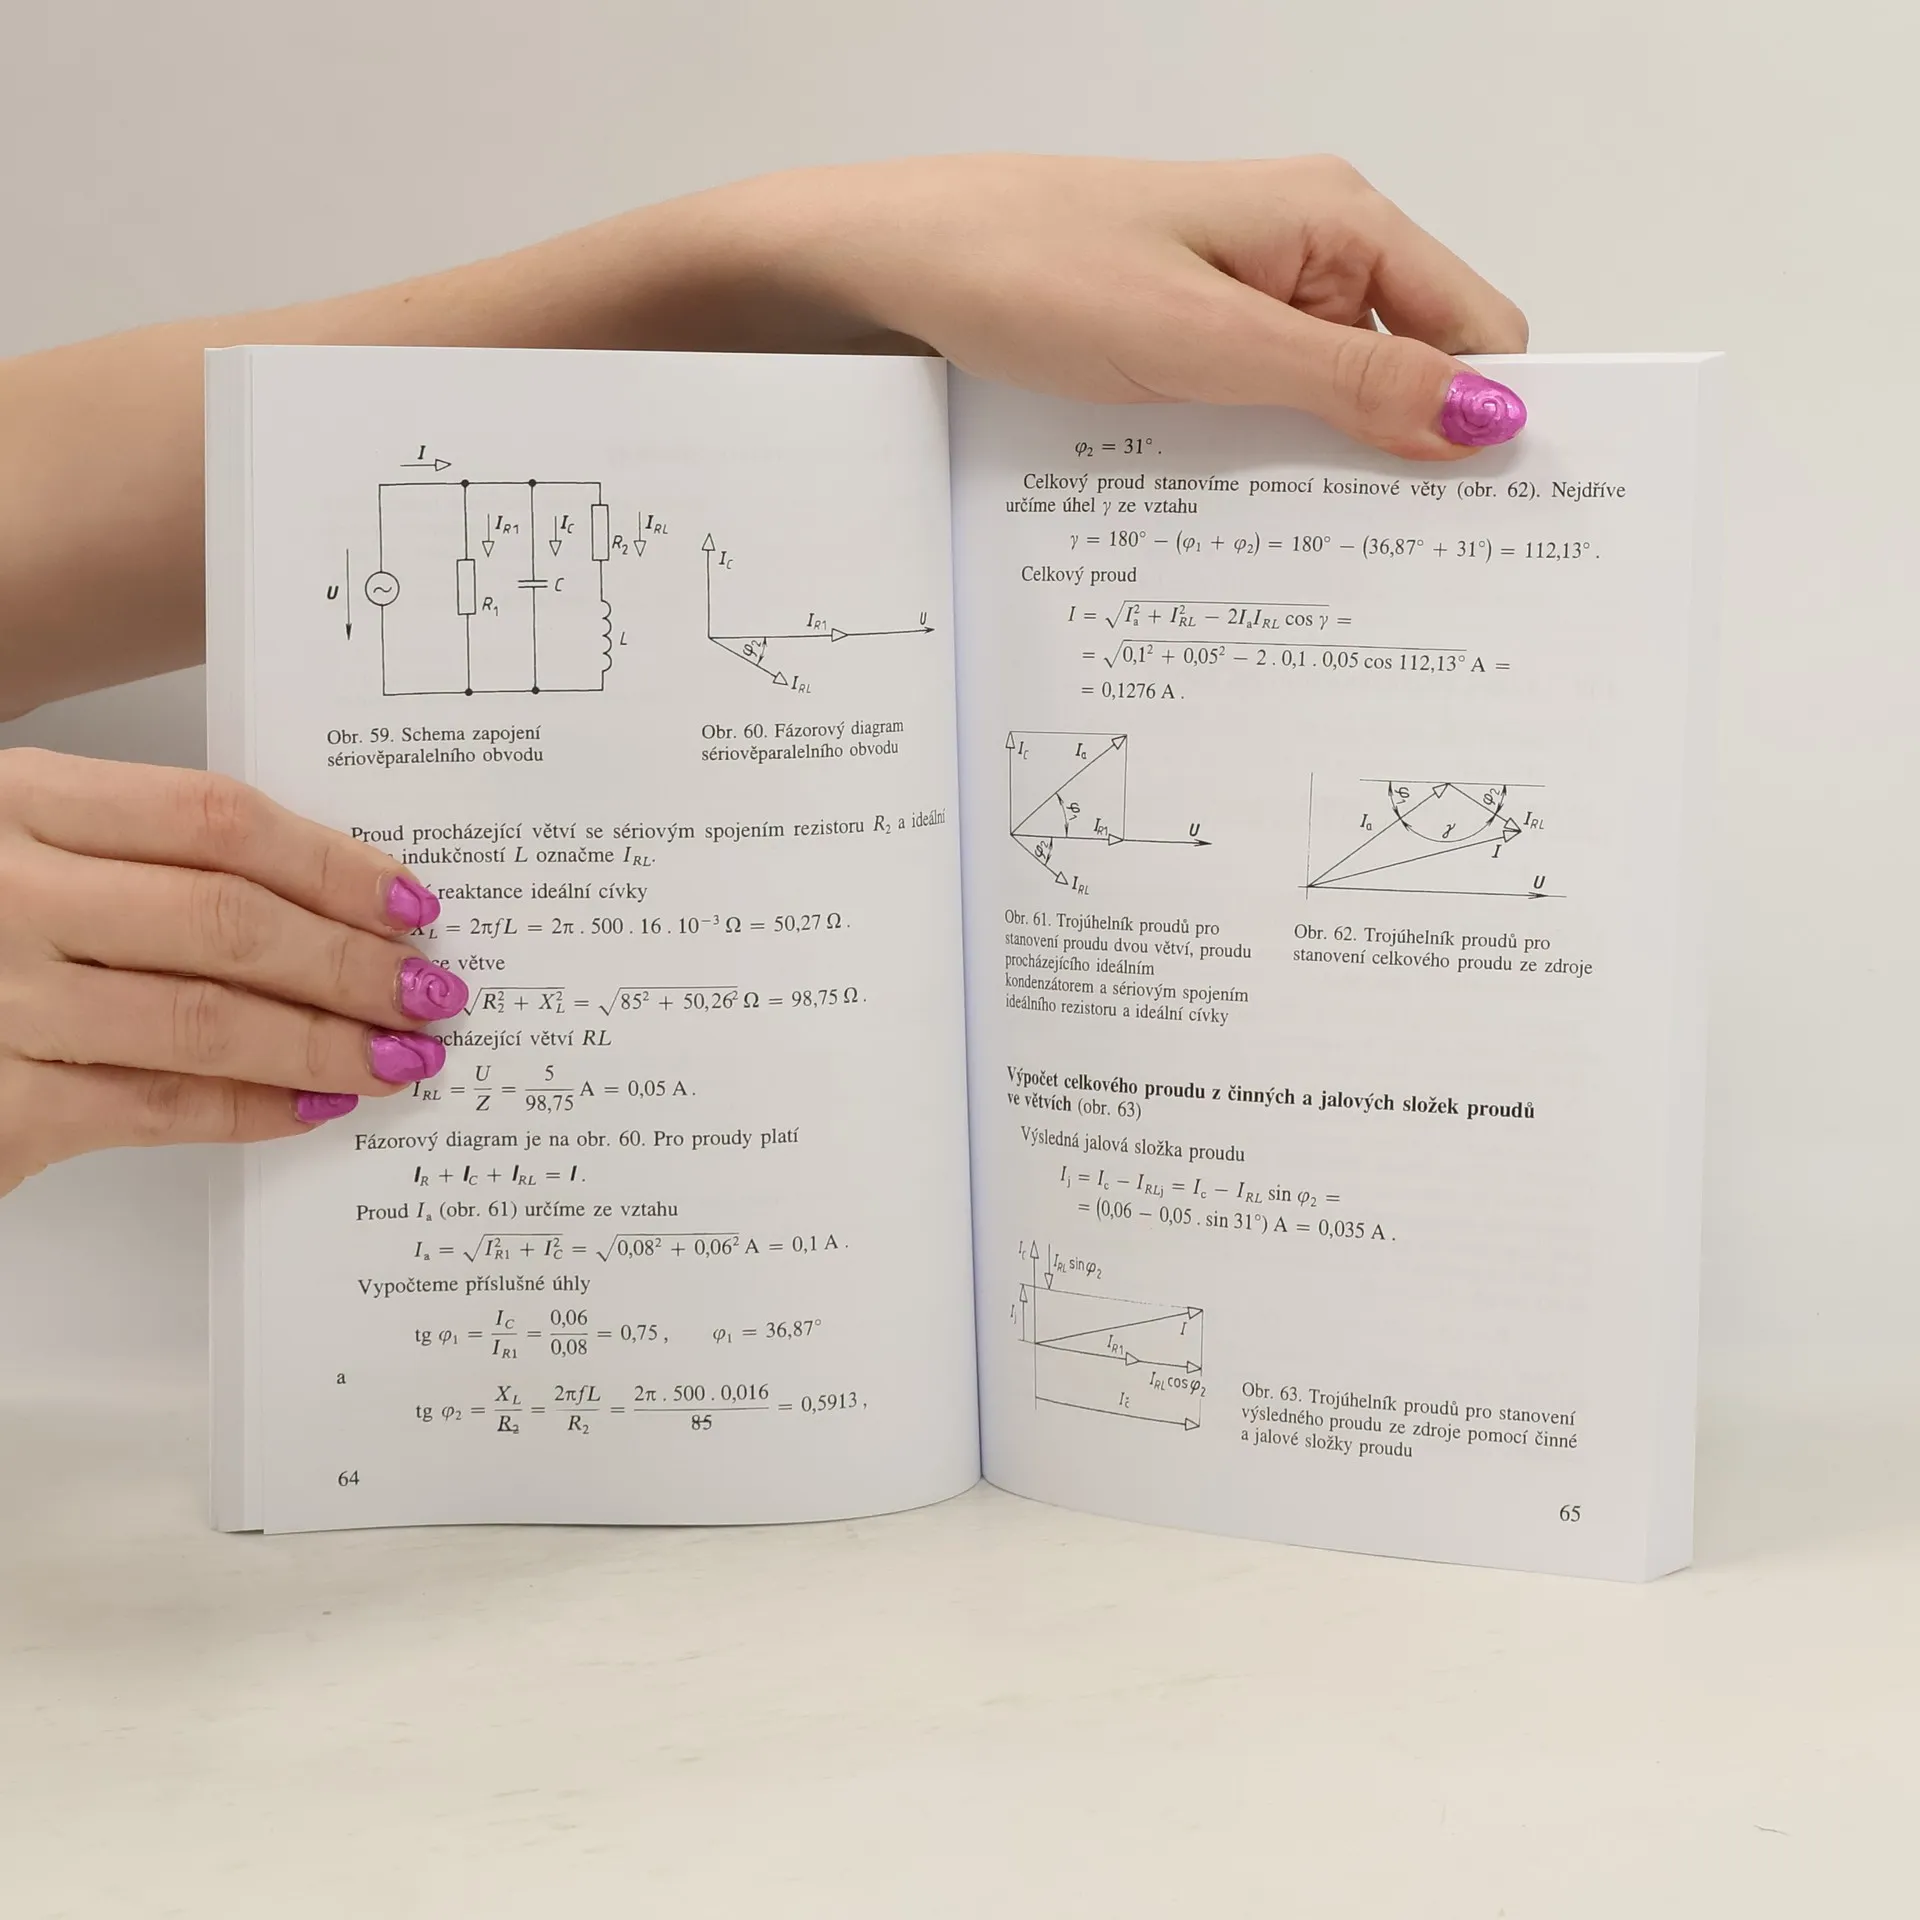 I
U
I_R1
I_C
R_2
I_RL
R_1
C
L
Obr. 59. Schema zapojení
sériověparalelního obvodu
I_C
I_R1
U
φ_2
I_RL
Obr. 60. Fázorový diagram
sériověparalelního obvodu
Proud procházející větví se sériovým spojením rezistoru R_2 a ideální
indukčností L označme I_RL.
reaktance ideální cívky
X_L = 2πfL = 2π . 500 . 16 . 10^−3 Ω = 50,27 Ω .
větve
√(R_2^2 + X_L^2) = √(85^2 + 50,26^2) Ω = 98,75 Ω .
větví RL
I_RL = U/Z = 5/98,75 A = 0,05 A .
Fázorový diagram je na obr. 60. Pro proudy platí
I_R + I_C + I_RL = I .
Proud I_a (obr. 61) určíme ze vztahu
I_a = √(I_R1^2 + I_C^2) = √(0,08^2 + 0,06^2) A = 0,1 A .
Vypočteme příslušné úhly
tg φ_1 = I_C/I_R1 = 0,06/0,08 = 0,75 , φ_1 = 36,87°
a
tg φ_2 = X_L/R_2 = 2πfL/R_2 = 2π . 500 . 0,016/85 = 0,5913 ,
64
φ_2 = 31° .
Celkový proud stanovíme pomocí kosinové věty (obr. 62). Nejdříve
určíme úhel γ ze vztahu
γ = 180° − (φ_1 + φ_2) = 180° − (36,87° + 31°) = 112,13° .
Celkový proud
I = √(I_a^2 + I_RL^2 − 2I_aI_RL cos γ) =
= √(0,1^2 + 0,05^2 − 2 . 0,1 . 0,05 cos 112,13°) A =
= 0,1276 A .
I_C
I_a
φ_1
I_R1
U
φ_2
I_RL
Obr. 61. Trojúhelník proudů pro
stanovení proudu dvou větví, proudu
procházejícího ideálním
kondenzátorem a sériovým spojením
ideálního rezistoru a ideální cívky
φ_1
φ_2
I_a
γ
I_RL
I
U
Obr. 62. Trojúhelník proudů pro
stanovení celkového proudu ze zdroje
Výpočet celkového proudu z činných a jalových složek proudů
ve větvích (obr. 63)
Výsledná jalová složka proudu
I_j = I_c − I_RLj = I_c − I_RL sin φ_2 =
= (0,06 − 0,05 . sin 31°) A = 0,035 A .
I_C
I_RL sin φ_2
I_j
I
I_R1
I_RL cos φ_2
I_č
Obr. 63. Trojúhelník proudů pro stanovení
výsledného proudu ze zdroje pomocí činné
a jalové složky proudu
65